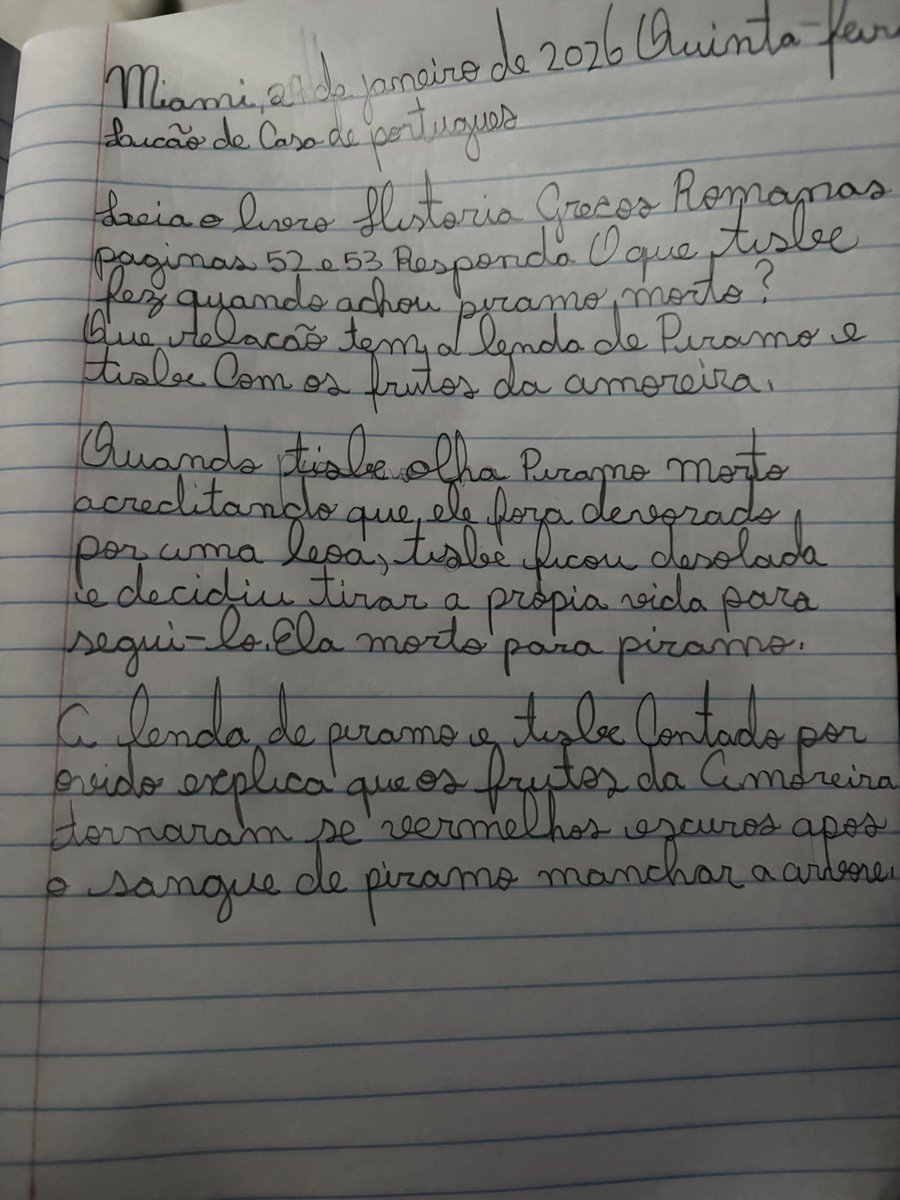 Miami, 29 de janeiro de 2026 Quinta-feir
Lucão de Casa de portugues
Leia o livro Historia Grecos Romanas
paginas 52 e 53 Responda O que tisbe
fez quando achou piramo morto?
Que relacão tem a lenda de Piramo e
tisbe Com os frutos da amoreira.
Quando tisbe olha Piramo morto
acreditando que ele fora devorado
por uma leoa, tisbe ficou desolada
e decidiu tirar a própia vida para
segui-lo. Ela morto para piramo.
A lenda de piramo e tisbe Contado por
ovido explica que os frutos da Amoreira
tornaram se vermelhos escuros apos
o sangue de piramo manchar a arvore.